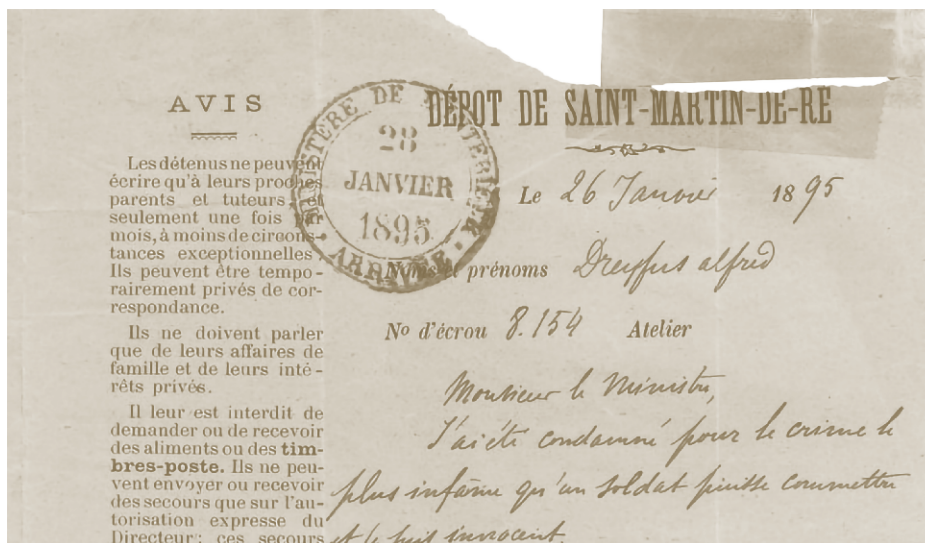 AVIS
Les détenus ne peuvent
écrire qu'à leurs proches
parents et tuteurs, et
seulement une fois par
mois, à moins de circons-
tances exceptionnelles.
Ils peuvent être tempo-
rairement privés de cor-
respondance.
Ils ne doivent parler
que de leurs affaires de
famille et de leurs inté-
rêts privés.
Il leur est interdit de
demander ou de recevoir
des aliments ou des tim-
bres-poste. Ils ne peu-
vent envoyer ou recevoir
des secours que sur l'au-
torisation expresse du
Directeur; ces secours
MINISTÈRE DE L'INTÉRIEUR
28
JANVIER
1895
ARRIVÉE
DÉPOT DE SAINT-MARTIN-DE-RÉ
Le 26 Janvier 1895
Noms et prénoms Dreyfus alfred
No d'écrou 8.154 Atelier
Monsieur le Ministre,
J'ai été condamné pour le crime le
plus infâme qu'un soldat puisse commettre
et je suis innocent.